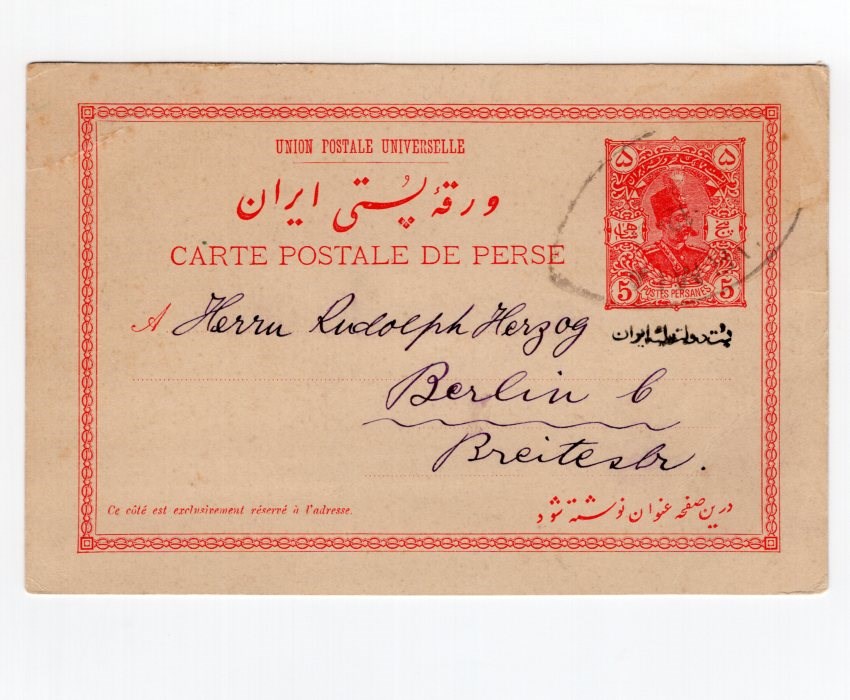 UNION POSTALE UNIVERSELLE
ورقهٔ پُستی ایران
CARTE POSTALE DE PERSE
۵ ۵
5 POSTES PERSANES 5
A Herrn Rudolph Herzog
پست دولت علیه ایران
Berlin C
Breitestr.
Ce côté est exclusivement réservé à l'adresse.
درین صفحه عنوان نوشته شود